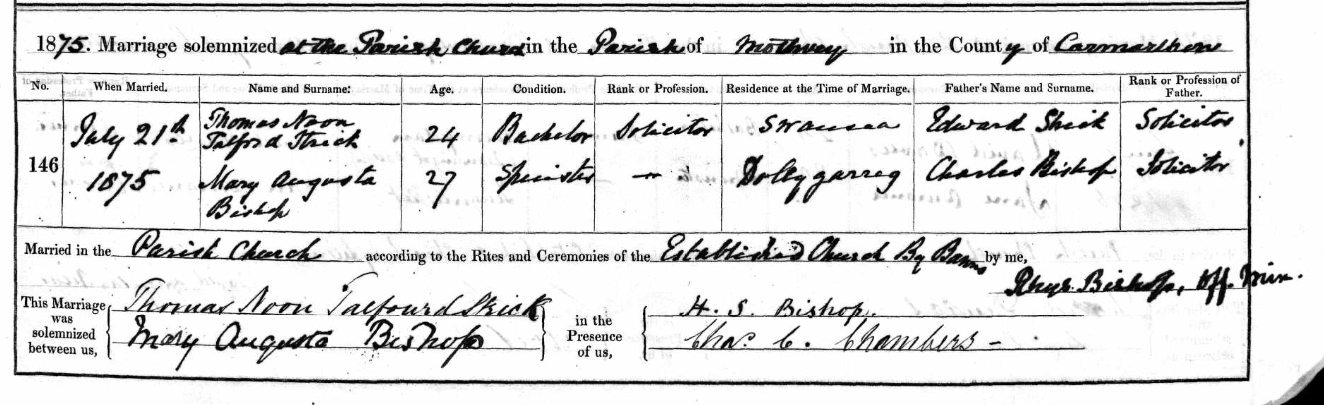 1875. Marriage solemnized at the Parish Church in the Parish of Mothvey in the County of Carmarthen
No. When Married. Name and Surname. Age. Condition. Rank or Profession. Residence at the Time of Marriage. Father's Name and Surname. Rank or Profession of Father.
146 July 21st 1875 Thomas Noon Talford Strick 24 Bachelor Solicitor Swansea Edward Strick Solicitor
Mary Augusta Bishop 27 Spinster — Dolygarreg Charles Bishop Solicitor
Married in the Parish Church according to the Rites and Ceremonies of the Established Church By Banns by me,
Rhys Bishop, Off. Min.
This Marriage was solemnized between us, Thomas Noon Talfourd Strick
Mary Augusta Bishop
in the Presence of us, H. S. Bishop.
Chas. C. Chambers